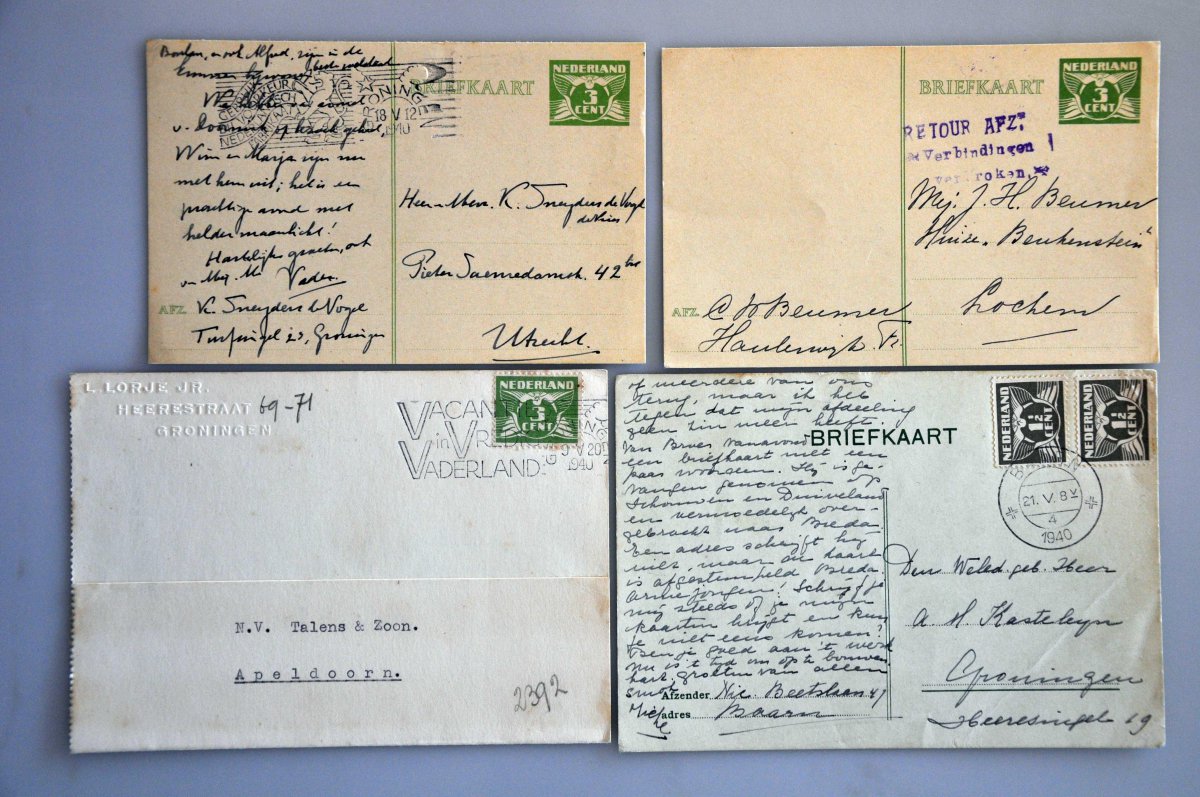 Bochen, en ook Alfred, zijn in de
Emmen
v. Doornik op bezoek gehad,
Wim en Marja zijn nu
met hem uit; het is een
prachtige avond met
helder maanlicht!
Hartelijke groeten, ook
v. Mej. M. Vader
AFZ. K. Sneyders de Vogel
Turfsingel 23, Groningen
BRIEFKAART
NEDERLAND
3
CENT
GRONINGEN
18 V 12
1940
Heer en Mevr. K. Sneyders de Vogel
de Vries
Pieter Saenredamstr. 42 bis
Utrecht.
BRIEFKAART
NEDERLAND
3
CENT
RETOUR AFZ.
Verbindingen
verbroken.
Mej. J. H. Beumer
Huize „Beukenstein"
Lochem
AFZ. C W Beumer
Haulerwijk Fr.
L. LORJE JR.
HEERESTRAAT 69-71
GRONINGEN
VACANTIE
in VRIJ
VADERLAND
9 V 20
1940
NEDERLAND
3
CENT
N.V. Talens & Zoon.
Apeldoorn.
2392
of meerdere van ons
terug, maar ik heb
tegen dat mijn afdeeling
geen zin meer heeft.
Van Broes vanavond
een briefkaart met een
paar woorden. Hij is ge-
vangen genomen op
Schouwen en Duiveland
en vermoedelijk over-
gebracht naar Breda
Een adres schrijft hij
niet, maar de kaart
is afgestempeld Breda
Arme jongen! Schrijf je
mij steeds of je mijn
kaarten krijgt en kun
je niet eens komen?
Ben je goed aan 't werk
nu is 't tijd om op te bouwen
hart. groeten van allen
BRIEFKAART
NEDERLAND
1½
CENT
NEDERLAND
1½
CENT
21. V. 8 V
4
1940
Den Weled. geb. Heer
A. M. Kasteleyn
Groningen
Heeresingel 19
Afzender Nic. Beetslaan 47
adres Baarn